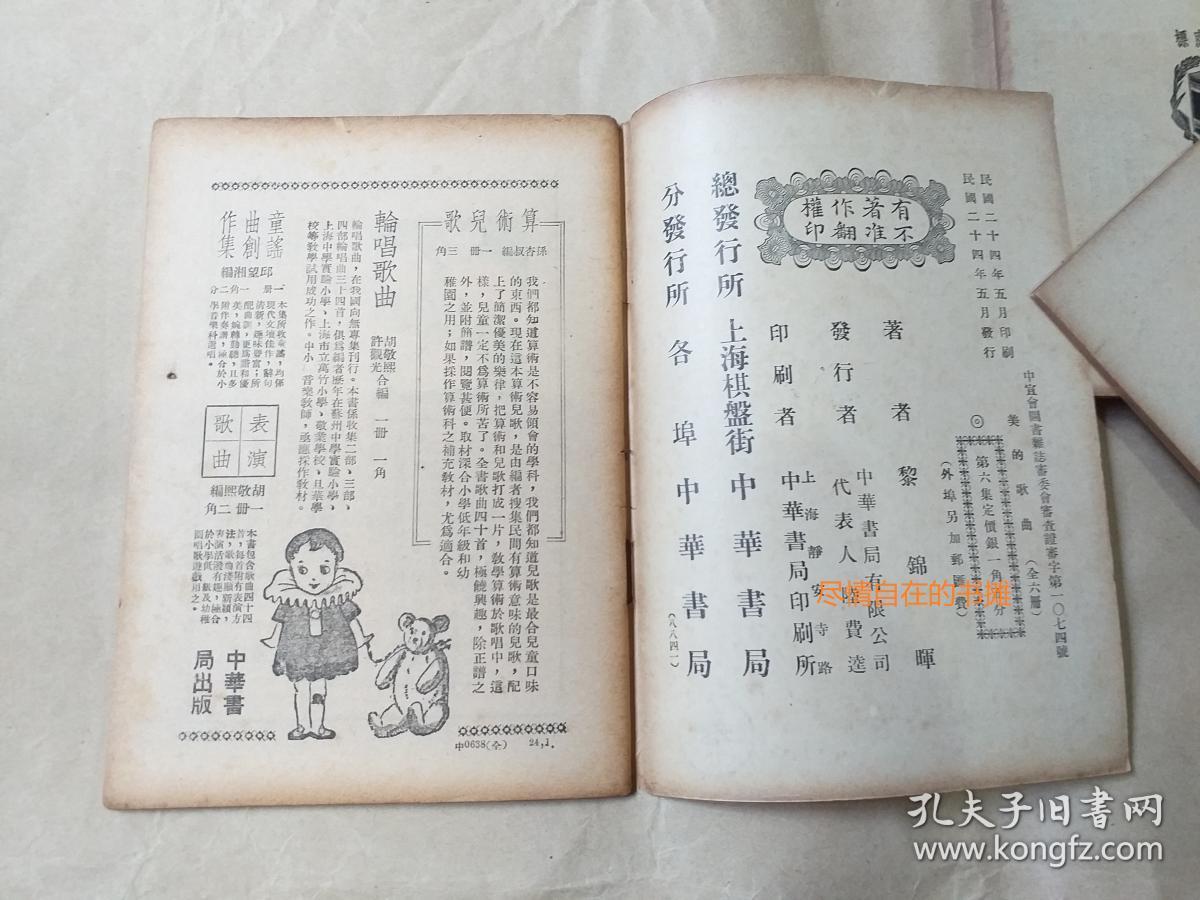 民國二十四年五月印刷
民國二十四年五月發行
中宣會圖書雜誌審委會審查證審字第一〇七四號
美的歌曲(全六冊)
◎第六集定價銀一角分
(外埠另加郵匯費)
有不
著准
作翻
權印
著者 黎錦暉
發行者 中華書局有限公司
代表人 陸費逵
印刷者 上海靜安寺路
中華書局印刷所
總發行所 上海棋盤街 中華書局
分發行所 各埠中華書局
(八八四一)
算術兒歌
孫杏叔編 一冊 三角
我們都知道算術是不容易領會的學科,我們都知道兒歌是最合兒童口味
的東西。現在這本算術兒歌,是由編者搜集民間有算術意味的兒歌,配
上了簡潔優美的樂律,把算術和兒歌打成一片,教學算術於歌唱中,這
樣,兒童一定不爲算術所苦了。全書歌曲四十首,極饒興趣,除正譜之
外,並附簡譜,閱覽甚便。取材深合小學低年級和幼
稚園之用;如果採作算術科之補充教材,尤爲適合。
輪唱歌曲
胡敬熙
許觀光合編 一冊 一角
輪唱歌曲,在我國向無專集刊行。本書係收集二部,三部,
四部輪唱曲三十四首,俱爲編者歷年在蘇州中學實驗小學,
上海中學實驗小學、上海市立萬竹小學、敬業學校、旦華學
校等教學試用成功之作。中小 音樂教師,亟應採作教材。
童謠
曲創
作集
邱望湘編
一冊 一角二分
本集所收童謠,均係
現代文壇佳作,辭句
清新,趣味豐富;所
配曲調,更爲諧和優
美,婉轉動聽,且多
附伴奏譜,極合於小
學音樂科選唱。
表演
歌曲
胡敬熙編
一冊 二角
本書包含歌曲四十四
首,每首附有表演方
法,歌曲淺顯新穎,
表演活潑有趣,極合
於小學低 級及幼稚
園唱歌遊戲用之。
中華書
局出版
中0638(全) 24,1.
尽情自在的书摊
孔夫子旧书网
www.kongfz.com